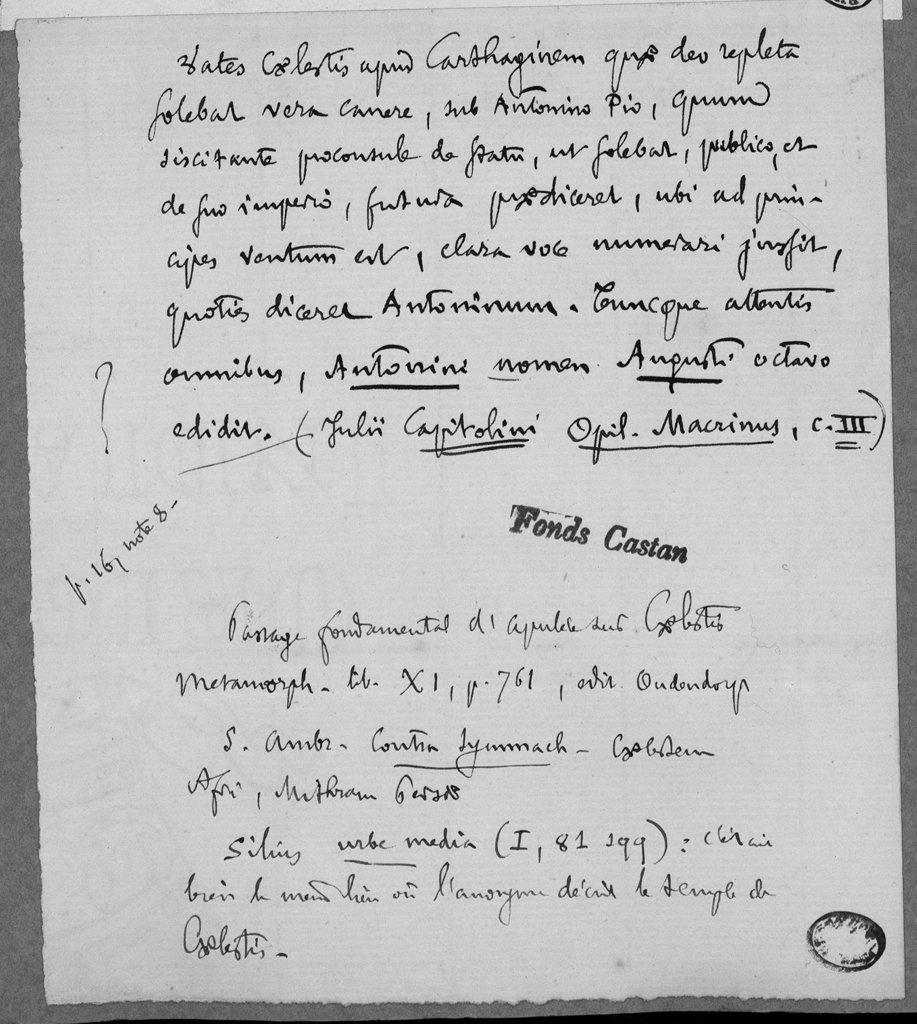 Vates Cælestis apud Carthaginem quæ deo repleta
solebat vera canere, sub Antonino Pio, quum
sciscitante proconsule de statu, ut solebat, publico, et
de suo imperio, futura prædiceret, ubi ad prin-
cipes ventum est, clara voce numerari jussit,
quoties diceret Antoninum. Tuncque attentis
omnibus, Antonini nomen Augusti octavo
edidit. (Julii Capitolini Opil. Macrinus, c. III)
?
p. 16, note 8 -
Fonds Castan
Passage fondamental d'apulée sur Cælestis
Metamorph. lib. XI, p. 761, edit. Oudendorp
S. Ambr. Contra Symmach - Cælestem
Afri, Mithram Persæ
Silius urbe media (I, 81 sqq) : c'était
bien le même lieu où l'anonyme décrit le temple de
Cælestis. -